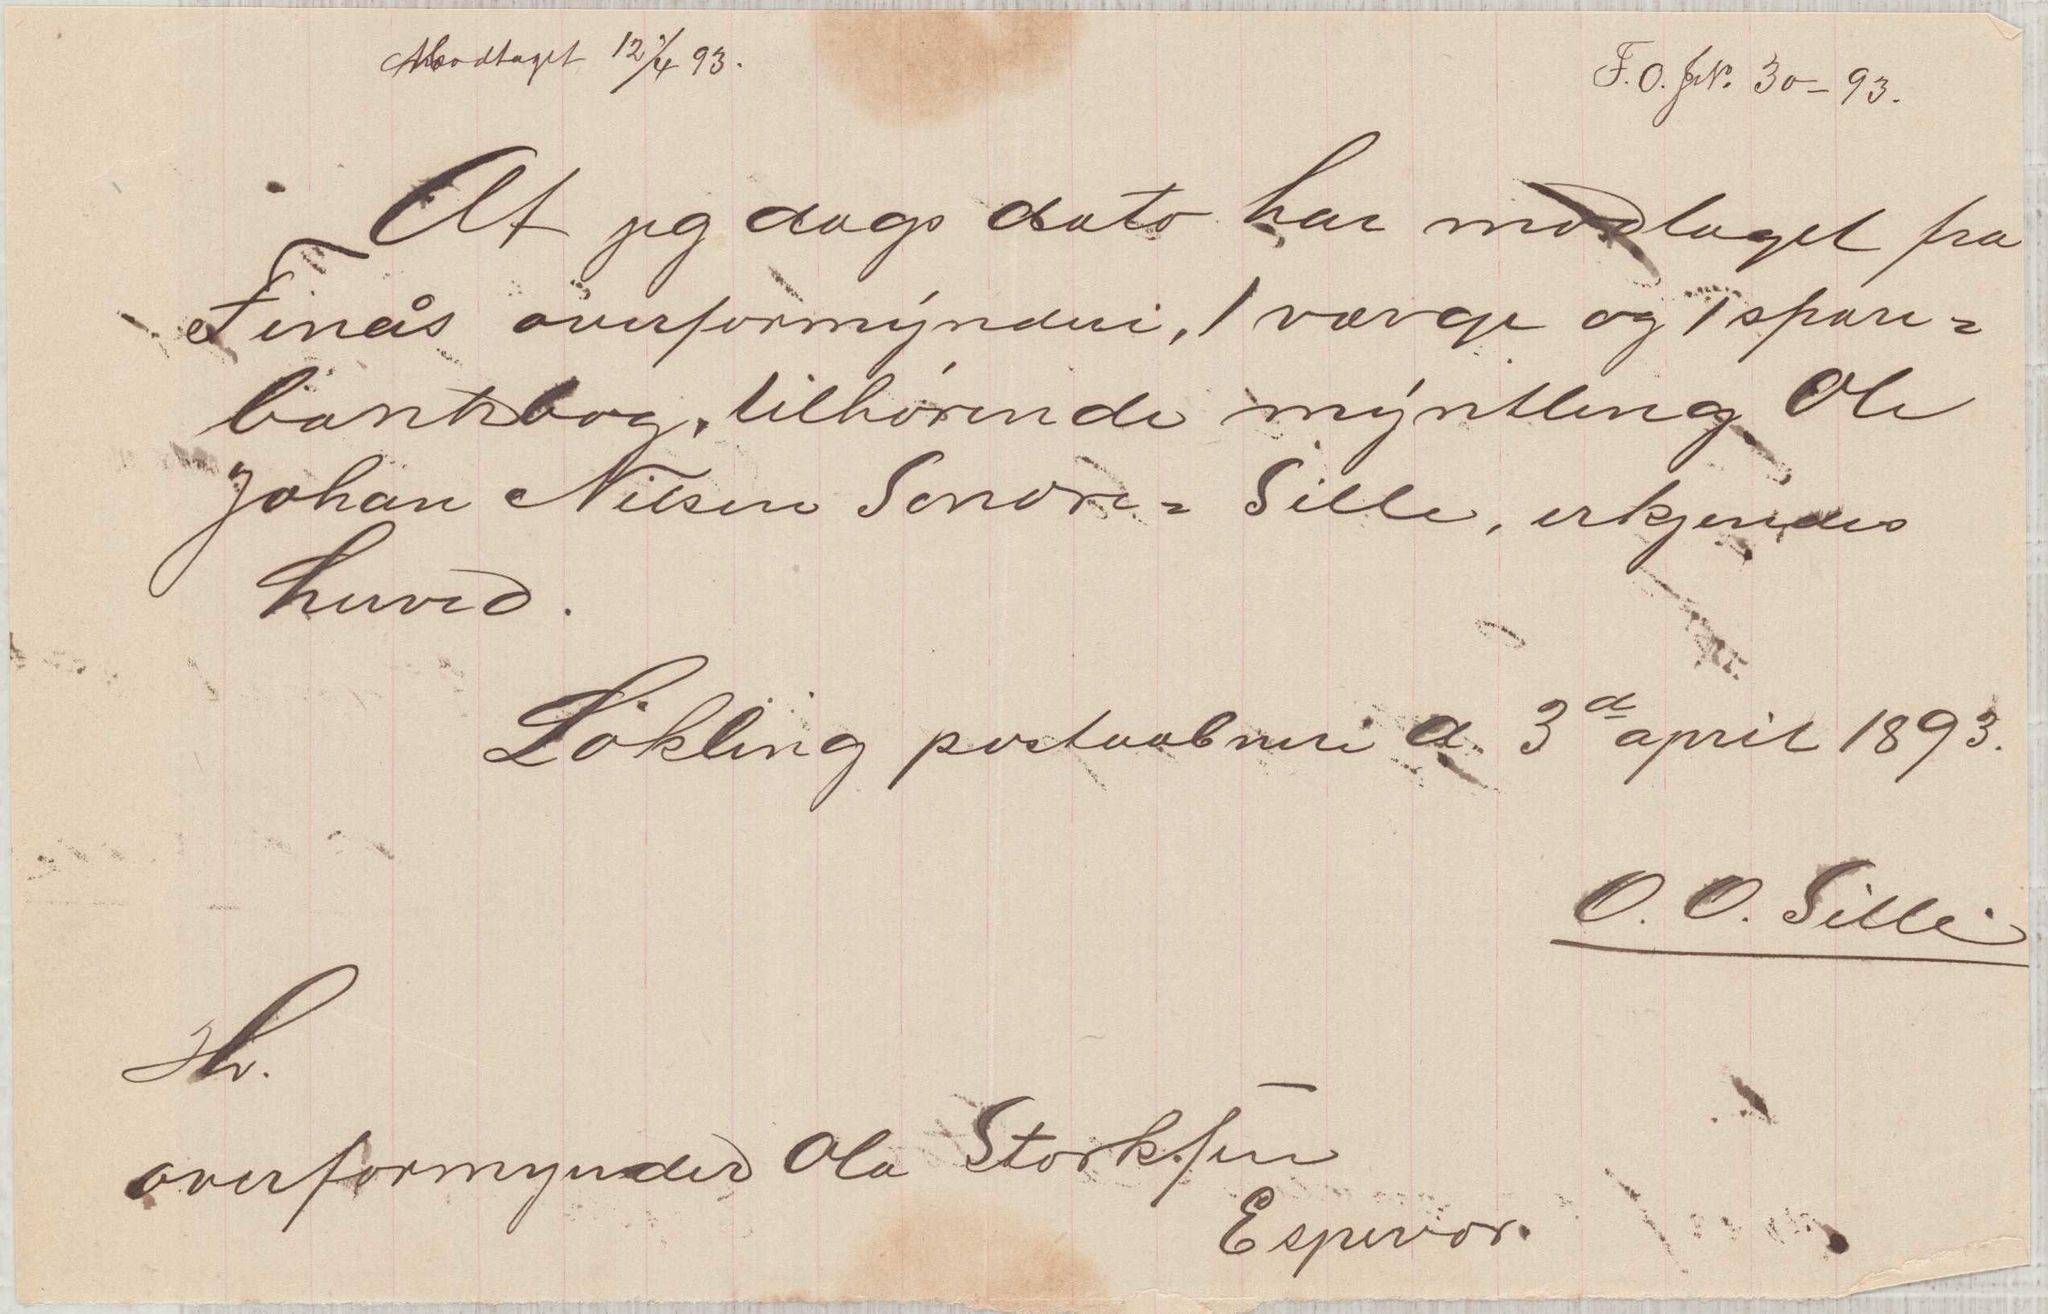 Modtaget 12/4 93.
F.O. JN. 30-93.
At jeg dags dato har modtaget fra
Finås overformynderi, 1 værge og 1 spare=
bankbog, tilhørende myntling Ole
Johan Nilsen Søndre= Sille, erkjendes
herved.
Løkling postaabneri d. 3d april 1893.
O. O. Sille
Hr.
overformynder Ola Storksen
Espevær.